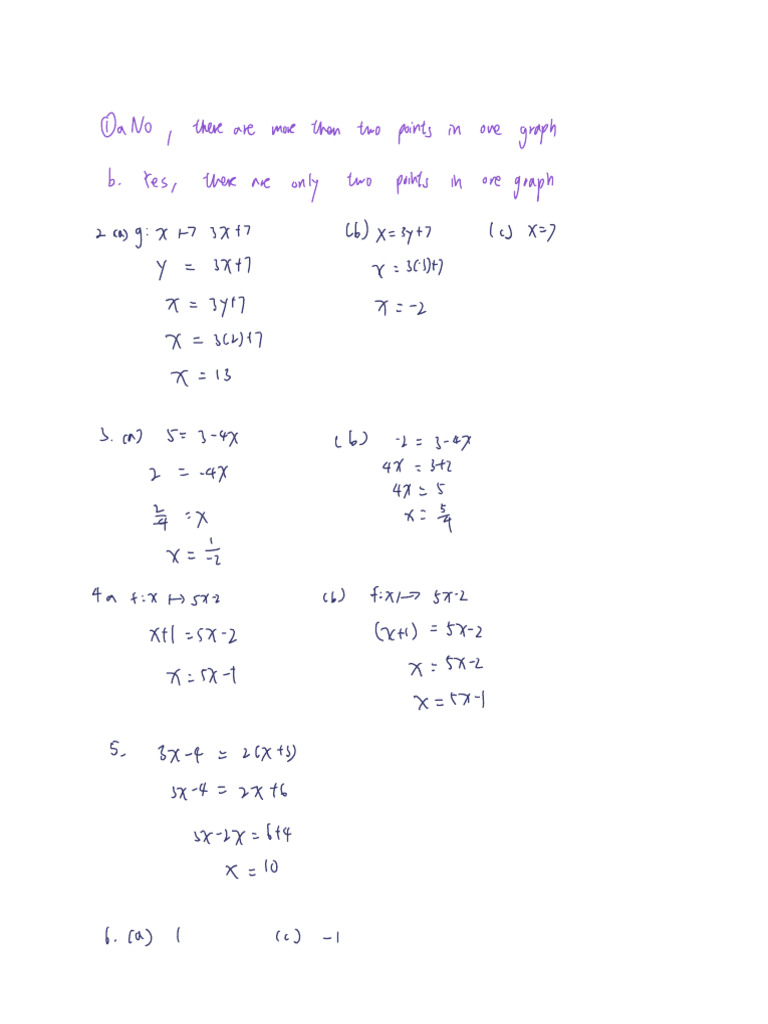 ①a No, there are more then two points in one graph
b. Yes, there are only two points in one graph
2 (a) g: x ↦ 3x+7
y = 3x+7
x = 3y+7
x = 3(2)+7
x = 13
(b) x = 3y+7
x = 3(-3)+7
x = -2
(c) x = 7
3. (a) 5 = 3-4x
2 = -4x
2/-4 = x
x = 1/-2
(b) -2 = 3-4x
4x = 3+2
4x = 5
x = 5/4
4 a f: x ↦ 5x-2
x+1 = 5x-2
x = 5x-1
(b) f: x ↦ 5x-2
(x+1) = 5x-2
x = 5x-2
x = 5x-1
5. 3x-4 = 2(x+3)
3x-4 = 2x+6
3x-2x = 6+4
x = 10
6. (a) 1
(c) -1